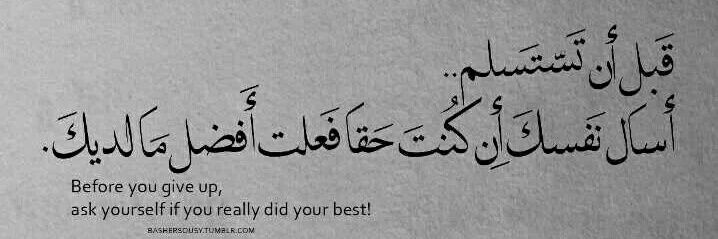 قَبل أَن تَسّتَسلم..
أسأل نَفسكَ أِن كُنتَ حَقاَ فَعلت أَفضل مَا لديكَ.
Before you give up,
ask yourself if you really did your best!
BASHERSOUSY.TUMBLR.COM